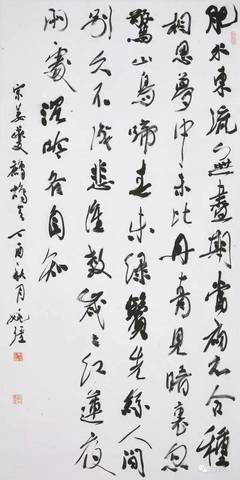 肥水東流無盡期當初不合種
相思夢中未比丹青見暗裏忽
驚山鳥啼春未綠鬢先絲人間
別久不成悲誰教歲々紅蓮夜
兩處沉吟各自知
宋姜夔鷓鴣天丁酉秋月